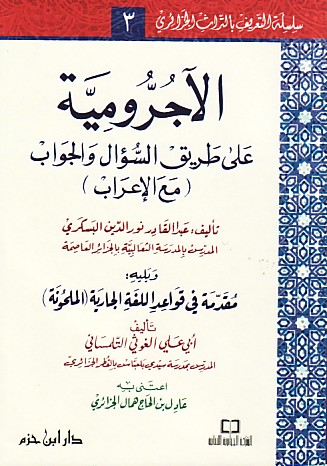 سلسلة التعريف بالتراث الجزائري
٣
الآجُرُّومِيَّة
عَلىٰ طَريق السُّؤال وَالجَوَاب
( مَعَ الإعرَاب )
تأليف: عبد القادر نور الدين البسكري
المدرّس بالمدرسة الثعالبيّة بالجزائر العاصمة
وَيليه:
مُقدّمة في قواعد اللغة الجارية (الملحونة)
تأليف
أبي علي الغوثي التلمساني
المدرّس بمدرسة سيدي بلعبّاس بالقطر الجزائريّ
اعتنى به
عادل بن الحاج همال الجزائري
دار ابن حزم